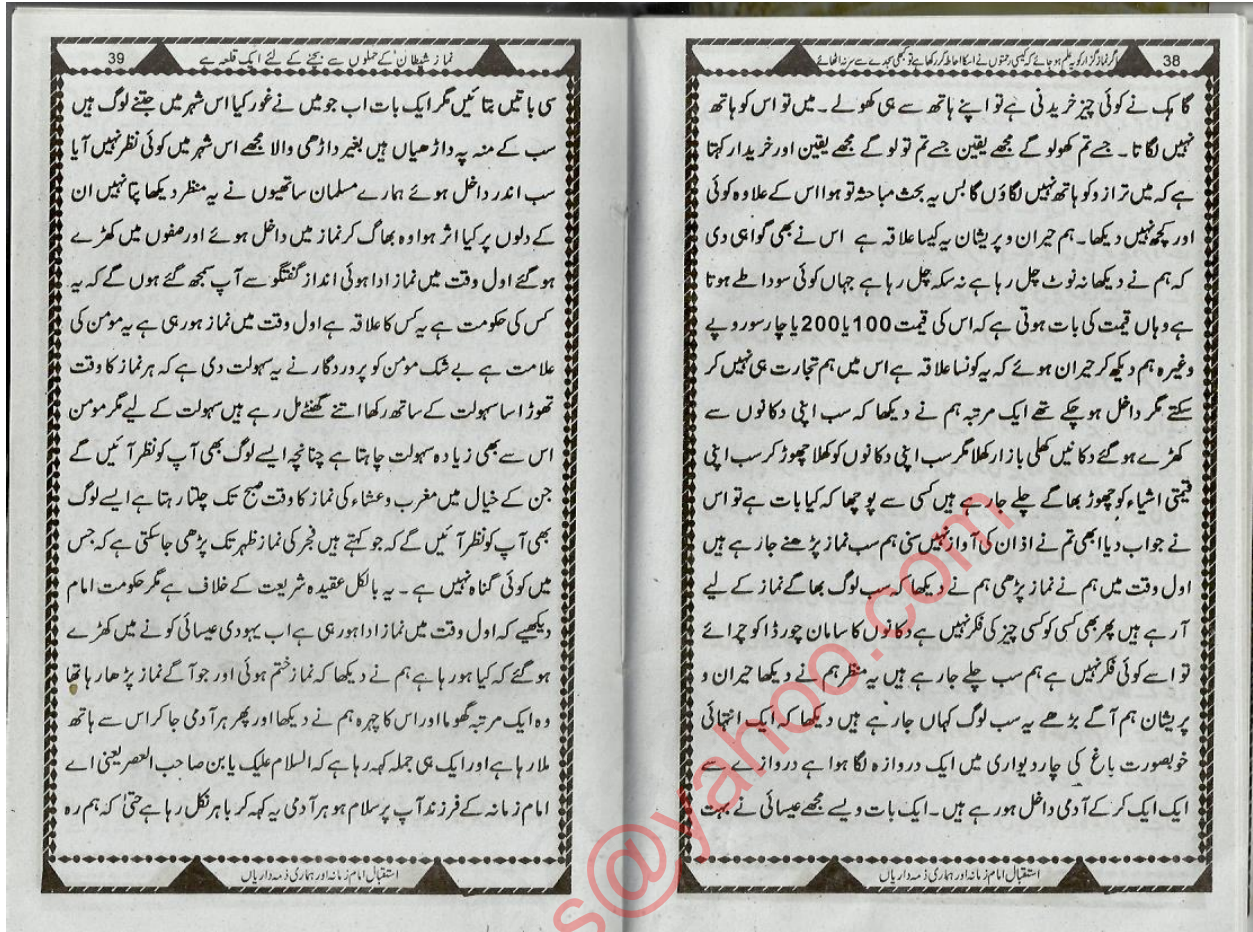 38
اگر نماز گزار کو یہ علم ہو جائے کہ کیسی رحمتوں نے اسکا احاطہ کر رکھا ہے تو کبھی سجدے سے سر نہ اٹھائے
گاہک نے کوئی چیز خریدنی ہے تو اپنے ہاتھ سے ہی کھولے ۔ میں تو اس کو ہاتھ
نہیں لگاتا ۔ جسے تم کھولو گے مجھے یقین جسے تم تولو گے مجھے یقین اور خریدار کہتا
ہے کہ میں ترازو کو ہاتھ نہیں لگاؤں گا بس یہ بحث مباحثہ تو ہوا اس کے علاوہ کوئی
اور کچھ نہیں دیکھا ۔ ہم حیران و پریشان یہ کیسا علاقہ ہے اس نے بھی گواہی دی
کہ ہم نے دیکھا نہ نوٹ چل رہا ہے نہ سکہ چل رہا ہے جہاں کوئی سودا طے ہوتا
ہے وہاں قیمت کی بات ہوتی ہے کہ اس کی قیمت 100 یا 200 یا چار سو روپے
وغیرہ ہم دیکھ کر حیران ہوئے کہ یہ کونسا علاقہ ہے اس میں ہم تجارت ہی نہیں کر
سکتے مگر داخل ہو چکے تھے ایک مرتبہ ہم نے دیکھا کہ سب اپنی دکانوں سے
کھڑے ہو گئے دکانیں کھلی بازار کھلا مگر سب اپنی دکانوں کو کھلا چھوڑ کر سب اپنی
قیمتی اشیاء کو چھوڑ بھاگے چلے جا رہے ہیں کسی سے پوچھا کہ کیا بات ہے تو اس
نے جواب دیا ابھی تم نے اذان کی آواز نہیں سنی ہم سب نماز پڑھنے جا رہے ہیں
اول وقت میں ہم نے نماز پڑھی ہم نے دیکھا کہ سب لوگ بھاگے نماز کے لیے
آ رہے ہیں پھر بھی کسی کو کسی چیز کی فکر نہیں ہے دکانوں کا سامان چور ڈاکو چرائے
تو اسے کوئی فکر نہیں ہے ہم سب چلے جا رہے ہیں یہ منظر ہم نے دیکھا حیران و
پریشان ہم آگے بڑھے یہ سب لوگ کہاں جا رہے ہیں دیکھا کہ ایک انتہائی
خوبصورت باغ کی چار دیواری میں ایک دروازہ لگا ہوا ہے دروازے سے
ایک ایک کر کے آدمی داخل ہو رہے ہیں ۔ ایک بات ویسے مجھے عیسائی نے بہت
استقبال امام زمانہ اور ہماری ذمہ داریاں
39
نماز شیطان کے حملوں سے بچنے کے لئے ایک قلعہ ہے
سی باتیں بتائیں مگر ایک بات اب جو میں نے غور کیا اس شہر میں جتنے لوگ ہیں
سب کے منہ پہ داڑھیاں ہیں بغیر داڑھی والا مجھے اس شہر میں کوئی نظر نہیں آیا
سب اندر داخل ہوئے ہمارے مسلمان ساتھیوں نے یہ منظر دیکھا پتا نہیں ان
کے دلوں پر کیا اثر ہوا وہ بھاگ کر نماز میں داخل ہوئے اور صفوں میں کھڑے
ہو گئے اول وقت میں نماز ادا ہوئی انداز گفتگو سے آپ سمجھ گئے ہوں گے کہ یہ
کس کی حکومت ہے یہ کس کا علاقہ ہے اول وقت میں نماز ہو رہی ہے یہ مومن کی
علامت ہے بے شک مومن کو پروردگار نے یہ سہولت دی ہے کہ ہر نماز کا وقت
تھوڑا سا سہولت کے ساتھ رکھا اتنے گھنٹے مل رہے ہیں سہولت کے لیے مگر مومن
اس سے بھی زیادہ سہولت چاہتا ہے چنانچہ ایسے لوگ بھی آپ کو نظر آئیں گے
جن کے خیال میں مغرب و عشاء کی نماز کا وقت صبح تک چلتا رہتا ہے ایسے لوگ
بھی آپ کو نظر آئیں گے کہ جو کہتے ہیں فجر کی نماز ظہر تک پڑھی جا سکتی ہے کہ جس
میں کوئی گناہ نہیں ہے ۔ یہ بالکل عقیدہ شریعت کے خلاف ہے مگر حکومت امام
دیکھیے کہ اول وقت میں نماز ادا ہو رہی ہے اب یہودی عیسائی کونے میں کھڑے
ہو گئے کہ کیا ہو رہا ہے ہم نے دیکھا کہ نماز ختم ہوئی اور جو آگے نماز پڑھا رہا تھا
وہ ایک مرتبہ گھوما اور اس کا چہرہ ہم نے دیکھا اور پھر ہر آدمی جا کر اس سے ہاتھ
ملا رہا ہے اور ایک ہی جملہ کہہ رہا ہے کہ السلام علیک یا بن صاحب العصر یعنی اے
امام زمانہ کے فرزند آپ پر سلام ہو ہر آدمی یہ کہہ کر باہر نکل رہا ہے حتیٰ کہ ہم رہ
استقبال امام زمانہ اور ہماری ذمہ داریاں
s@yahoo.com